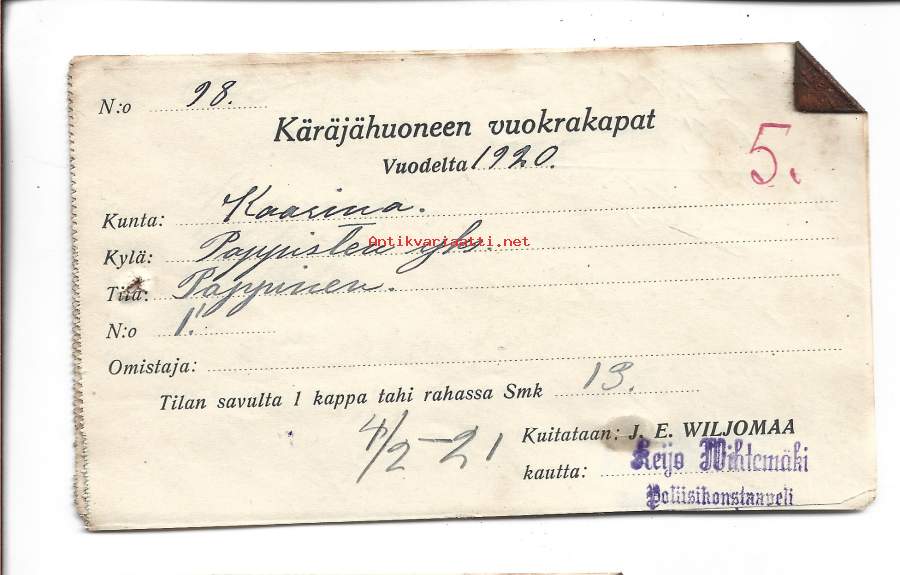 N:o 98.
Käräjähuoneen vuokrakapat
Vuodelta 1920.
5.
Kunta: Kaarina.
Kylä: Pappisten yks.
Antikvariaatti.net
Tila: Pappinen.
N:o 1.
Omistaja:
Tilan savulta 1 kappa tahi rahassa Smk 13.
4/2-21
Kuitataan: J. E. WILJOMAA
kautta: Keijo Wihtemäki
Poliisikonstaapeli